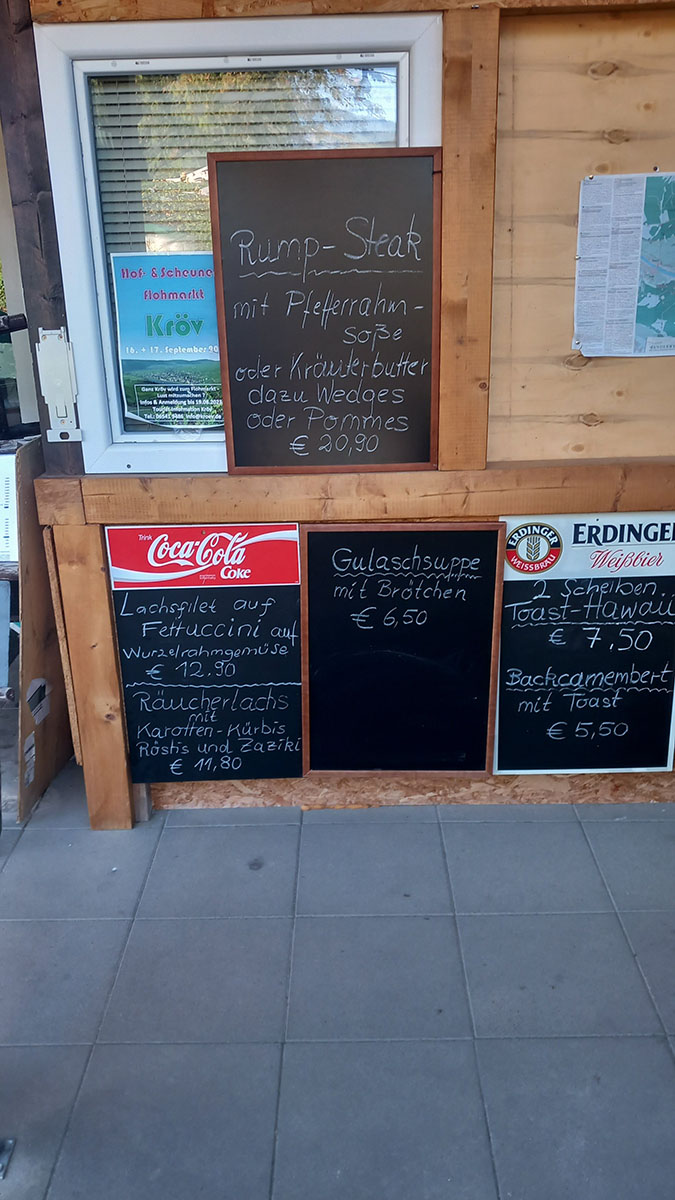 Hof- & Scheunen
Flohmarkt
Kröv
16. + 17. September 20
Ganz Kröv wird zum Flohmarkt -
Lust mitzumachen ?
Infos & Anmeldung bis 19.08.2023
Tourist-Information Kröv
Tel.: 06541 9486 info@kroev.de
Rump-Steak
mit Pfefferrahm-
soße
oder Kräuterbutter
dazu Wedges
oder Pommes
€ 20,90
Trink
Coca-Cola
Coke
Lachsfilet auf
Fettuccini auf
Wurzelrahmgemüse
€ 12.90
Räucherlachs
mit
Karotten-Kürbis
Röstis und Zaziki
€ 11,80
Gulaschsuppe
mit Brötchen
€ 6,50
ERDINGER
WEISSBRÄU
ERDINGE
Weißbier
2 Scheiben
Toast-Hawaii
€ 7,50
Backcamembert
mit Toast
€ 5,50